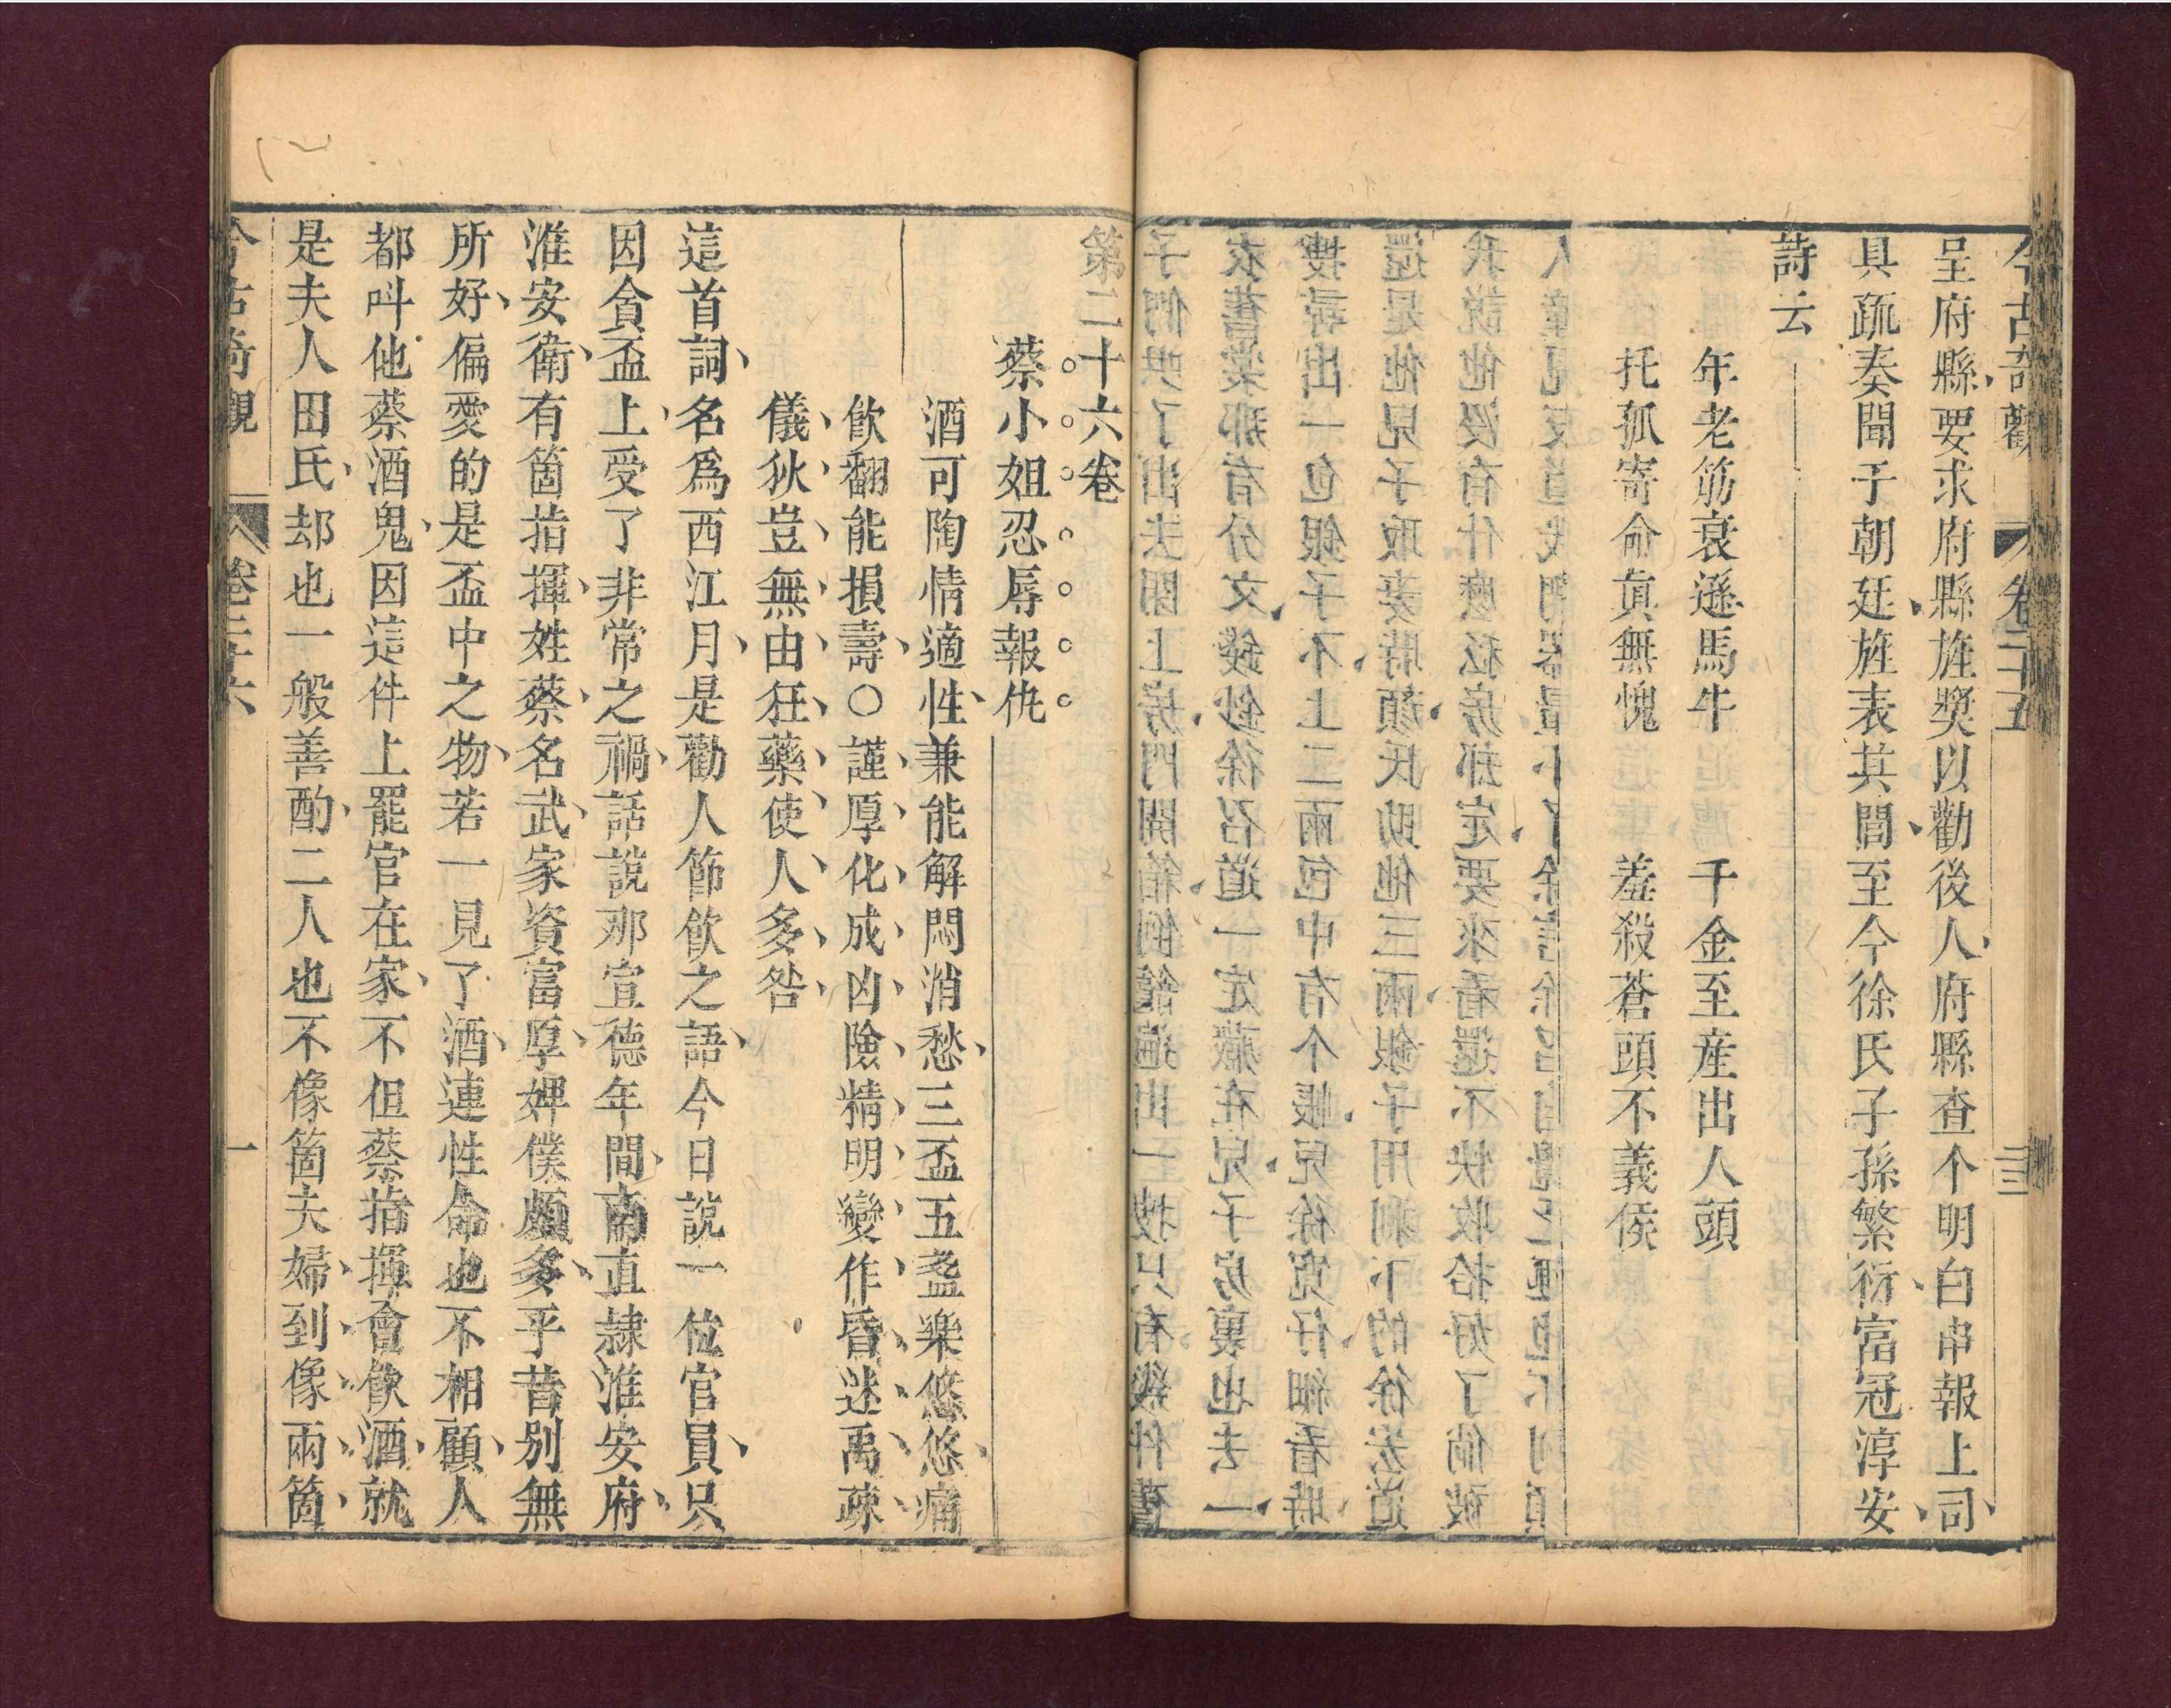 今古奇觀 卷二十五 三三
呈府縣要求府縣旌獎以勸後人府縣查个明白申報上司
具疏奏聞于朝廷旌表其閭至今徐氏子孫繁衍富冠淳安
詩云
年老筋衰遜馬牛 千金至産出人頭
托孤寄命真無愧 羞殺蒼頭不義侯
第二十六卷
蔡小姐忍辱報仇
酒可陶情適性兼能解悶消愁三盃五盞樂悠悠痛
飲翻能損壽○謹厚化成凶險精明變作昏迷禹疎
儀狄豈無由狂藥使人多咎
這首詞名爲西江月是勸人節飲之語今日說一位官員只
因貪盃上受了非常之禍話說那宣德年間南直隷淮安府
淮安衛有箇指揮姓蔡名武家資富厚婢僕頗多平昔別無
所好偏愛的是盃中之物若一見了酒連性命也不相顧人
都呌他蔡酒鬼因這件上罷官在家不但蔡指揮會飲酒就
是夫人田氏却也一般善酌二人也不像箇夫婦到像兩箇
今古奇觀 卷二十六 一